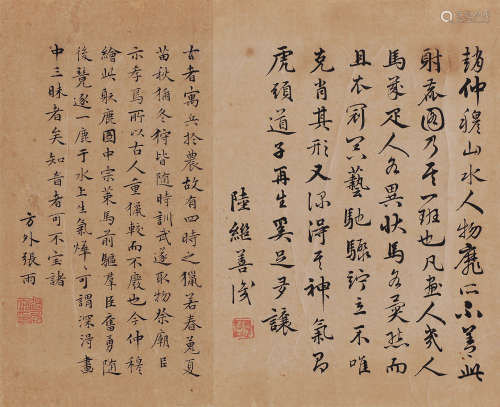 趙仲穆山水人物靡所不善此
射鹿圖乃其一班也凡畫人我人
馬幾疋人各異狀馬各異態而
且衣冠異藝馳驟佇立不唯
克肖其形又深得其神氣昂
虎頭道子再生奚足多讓
陸繼善識
古者寓兵於農故有四時之獵若春蒐夏
苗秋獮冬狩皆隨時訓武遂取物祭廟臣
示孝焉所以古人重獵較而不廢也今仲穆
繪此射鹿圖中宗策馬前驅羣臣奮勇隨
後競逐一鹿于水上生氣燁燁可謂深得畫
中三昧者矣知音者可不宝諸
方外張雨